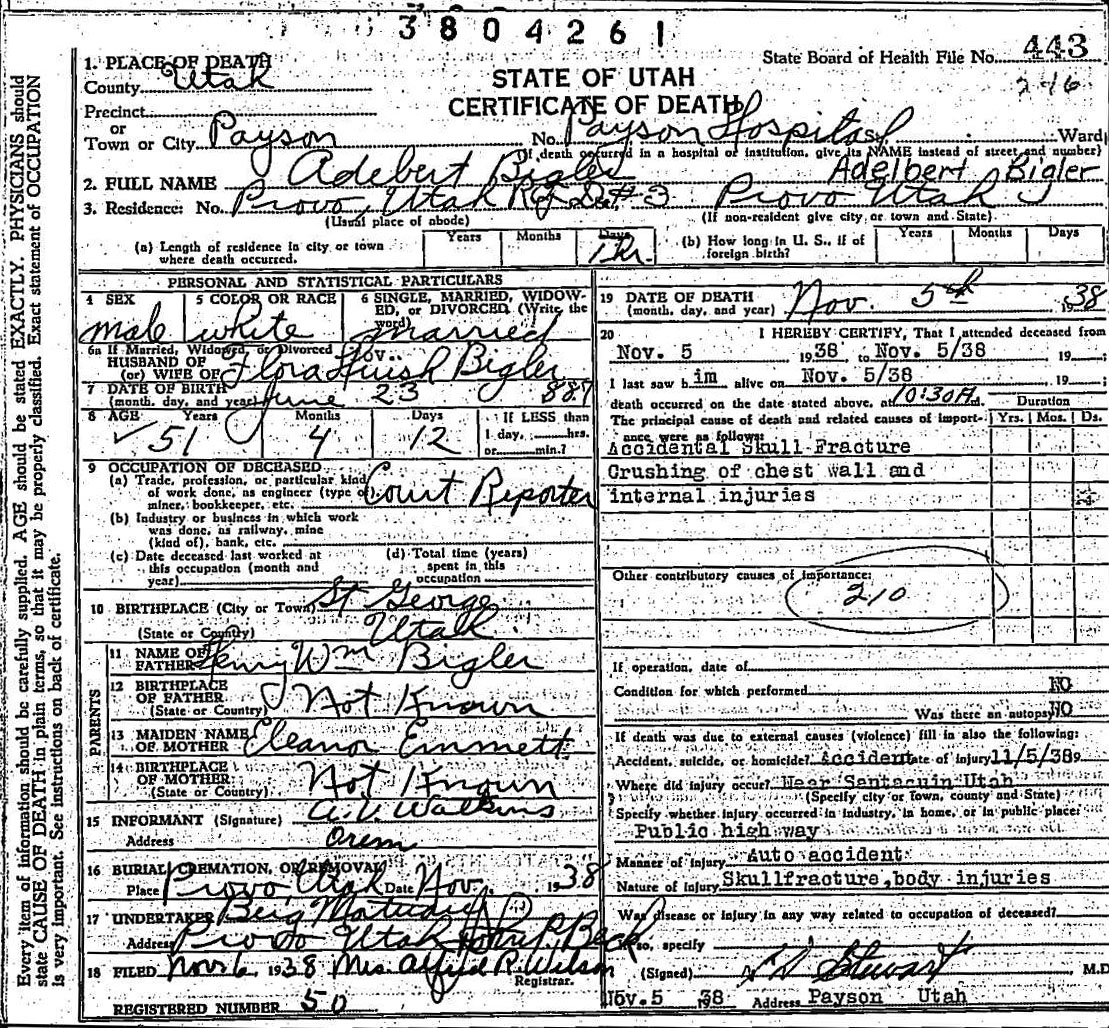 3804261
State Board of Health File No. 443
246
STATE OF UTAH
CERTIFICATE OF DEATH
1. PLACE OF DEATH
County Utah
Precinct
or
Town or City Payson No. Payson Hospital St. Ward
(If death occurred in a hospital or institution, give its NAME instead of street and number)
2. FULL NAME Adebert Bigler Adelbert Bigler
3. Residence: No. Provo, Utah Rt. #3 Provo Utah
(Usual place of abode) (If non-resident give city or town and State)
(a) Length of residence in city or town where death occurred. Years Months Days 1 hr.
(b) How long in U. S., if of foreign birth? Years Months Days
PERSONAL AND STATISTICAL PARTICULARS
4 SEX male
5 COLOR OR RACE white
6 SINGLE, MARRIED, WIDOWED, or DIVORCED (Write the word) married
6a If Married, Widowed, or Divorced
HUSBAND OF
(or) WIFE OF Flora Huish Bigler
7 DATE OF BIRTH
(month, day, and year) June 23 887
8 AGE Years 51 Months 4 Days 12 If LESS than
1 day, hrs.
or min.?
9 OCCUPATION OF DECEASED
(a) Trade, profession, or particular kind
of work done, as engineer (type of
miner, bookkeeper, etc. Court Reporter
(b) Industry or business in which work
was done, as railway, mine
(kind of), bank, etc.
(c) Date deceased last worked at
this occupation (month and
year)
(d) Total time (years)
spent in this
occupation
10 BIRTHPLACE (City or Town) St George
(State or Country) Utah
PARENTS
11 NAME OF
FATHER Henry Wm Bigler
12 BIRTHPLACE
OF FATHER
(State or Country) Not Known
13 MAIDEN NAME
OF MOTHER Eleanor Emmett
14 BIRTHPLACE
OF MOTHER
(State or Country) Not Known
15 INFORMANT (Signature) A. V. Watkins
Address Orem
16 BURIAL, CREMATION, OR REMOVAL
Place Provo, Utah Date Nov. 1938
17 UNDERTAKER Berg Mortuary
Address Provo Utah Beck
18 FILED Nov 6 1938 Mrs. Alfred R. Wilson
Registrar.
REGISTERED NUMBER 50
19 DATE OF DEATH
(month, day, and year) Nov. 5th 38
20 I HEREBY CERTIFY, That I attended deceased from
Nov. 5 1938 to Nov. 5/38 19
I last saw him alive on Nov. 5/38 19
death occurred on the date stated above, at 10:30 A m.
The principal cause of death and related causes of importance were as follows: Duration Yrs. Mos. Ds.
Accidental Skull Fracture
Crushing of chest wall and
internal injuries
Other contributory causes of importance:
210
If operation, date of
Condition for which performed NO
Was there an autopsy NO
If death was due to external causes (violence) fill in also the following:
Accident, suicide, or homicide? Accident Date of injury 11/5/38
Where did injury occur? Near Santaquin Utah
(Specify city or town, county and State)
Specify whether injury occurred in industry, in home, or in public place:
Public high way
Manner of injury Auto accident
Nature of injury Skullfracture, body injuries
Was disease or injury in any way related to occupation of deceased?
If so, specify
(Signed) Stewart M.D
Nov. 5 38 Address Payson Utah
Every item of information should be carefully supplied. AGE should be stated EXACTLY. PHYSICIANS should
state CAUSE OF DEATH in plain terms, so that it may be properly classified. Exact statement of OCCUPATION
is very important. See instructions on back of certificate.